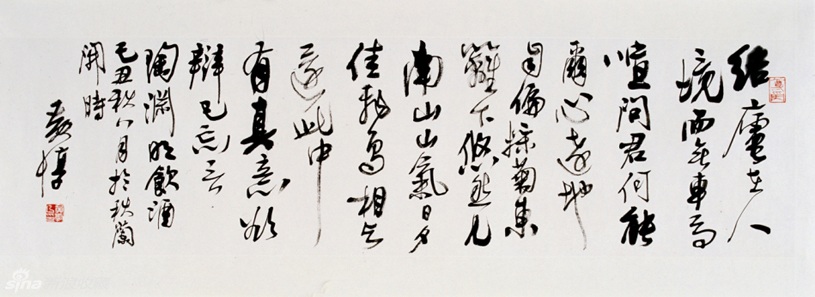 結廬在人
境而無車馬
喧問君何能
爾心遠地
自偏採菊東
籬下悠然見
南山山氣日夕
佳飛鳥相與
還此中
有真意欲
辯已忘言
陶淵明飲酒
己丑秋八月於秋蘭
開時
sina